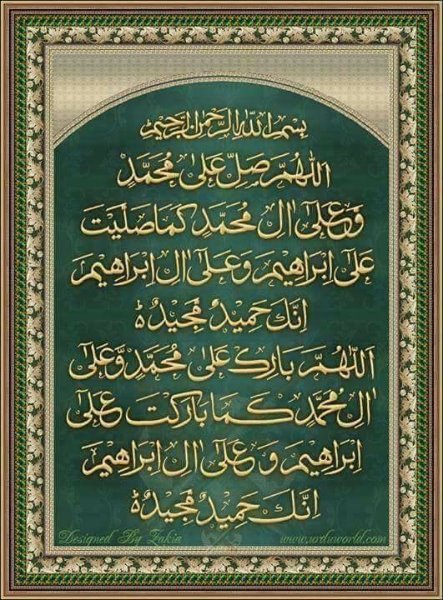 بسم الله الرحمن الرحيم
اللّٰهُمَّ صَلِّ عَلٰى مُحَمَّدٍ
وَّعَلٰٓى اٰلِ مُحَمَّدٍ كَمَا صَلَّيْتَ
عَلٰٓى اِبْرَاهِيْمَ وَعَلٰٓى اٰلِ اِبْرَاهِيْمَ
اِنَّكَ حَمِيْدٌ مَّجِيْدٌ ۃ
اَللّٰهُمَّ بَارِكْ عَلٰى مُحَمَّدٍ وَّعَلٰٓى
اٰلِ مُحَمَّدٍ كَمَا بَارَكْتَ عَلٰٓى
اِبْرَاهِيْمَ وَعَلٰٓى اٰلِ اِبْرَاهِيْمَ
اِنَّكَ حَمِيْدٌ مَّجِيْدٌ ۃ
Designed By Zakia www.urduworld.com